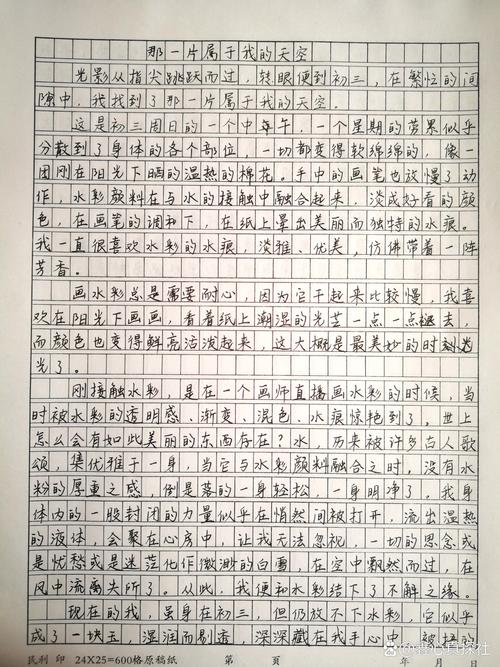 那一片属于我的天空
光影从指尖跳跃而过，转眼便到初三，在繁忙的间
隙中，我找到了那一片属于我的天空。
这是初三周日的一个中午，一个星期的劳累似乎
分散到了身体的各个部位，一切都变得软绵绵的，像一
团刚在阳光下晒的温热的棉花。手中的画笔也放慢了动
作，水彩颜料在与水的接触中融合起来，淡成好看的颜
色，在画笔的调和下，在纸上晕出美丽而独特的水痕。
我一直很喜欢水彩的水痕，淡雅、优美，仿佛带着一阵
芳香。
画水彩总是需要耐心，因为它干起来比较慢，我喜
欢在阳光下画画，看着纸上潮湿的光芒一点一点褪去，
而颜色也变得鲜亮活泼起来，这大概是最美妙的时刻
光了。
刚接触水彩，是在一个画师直播画水彩的时候，当
时被水彩的透明感、渐变、混色、水痕惊艳到了。世上
怎么会有如此美丽的东西存在？水，历来被许多古人歌
颂，集优雅于一身，当它与水彩颜料融合之时，没有水
粉的厚重之感，倒是落的一身轻松，一身明净了。我身
体内的一股封闭的力量似乎在悄然间被打开，流出温热
的液体，会聚在心房中，让我无法忽视，一切的思念或
是忧愁或是迷茫化作微渺的白雪，在空中飘然而过，在
风中流离失所了。从此，我便和水彩结下了不解之缘。
现在的我，虽身在初三，但仍放不下水彩，它似乎
成了一块玉，湿润而剔透，深深藏在我手心中，被捂的
民利 印 24×25=600格原稿纸 第 页 年 月 日